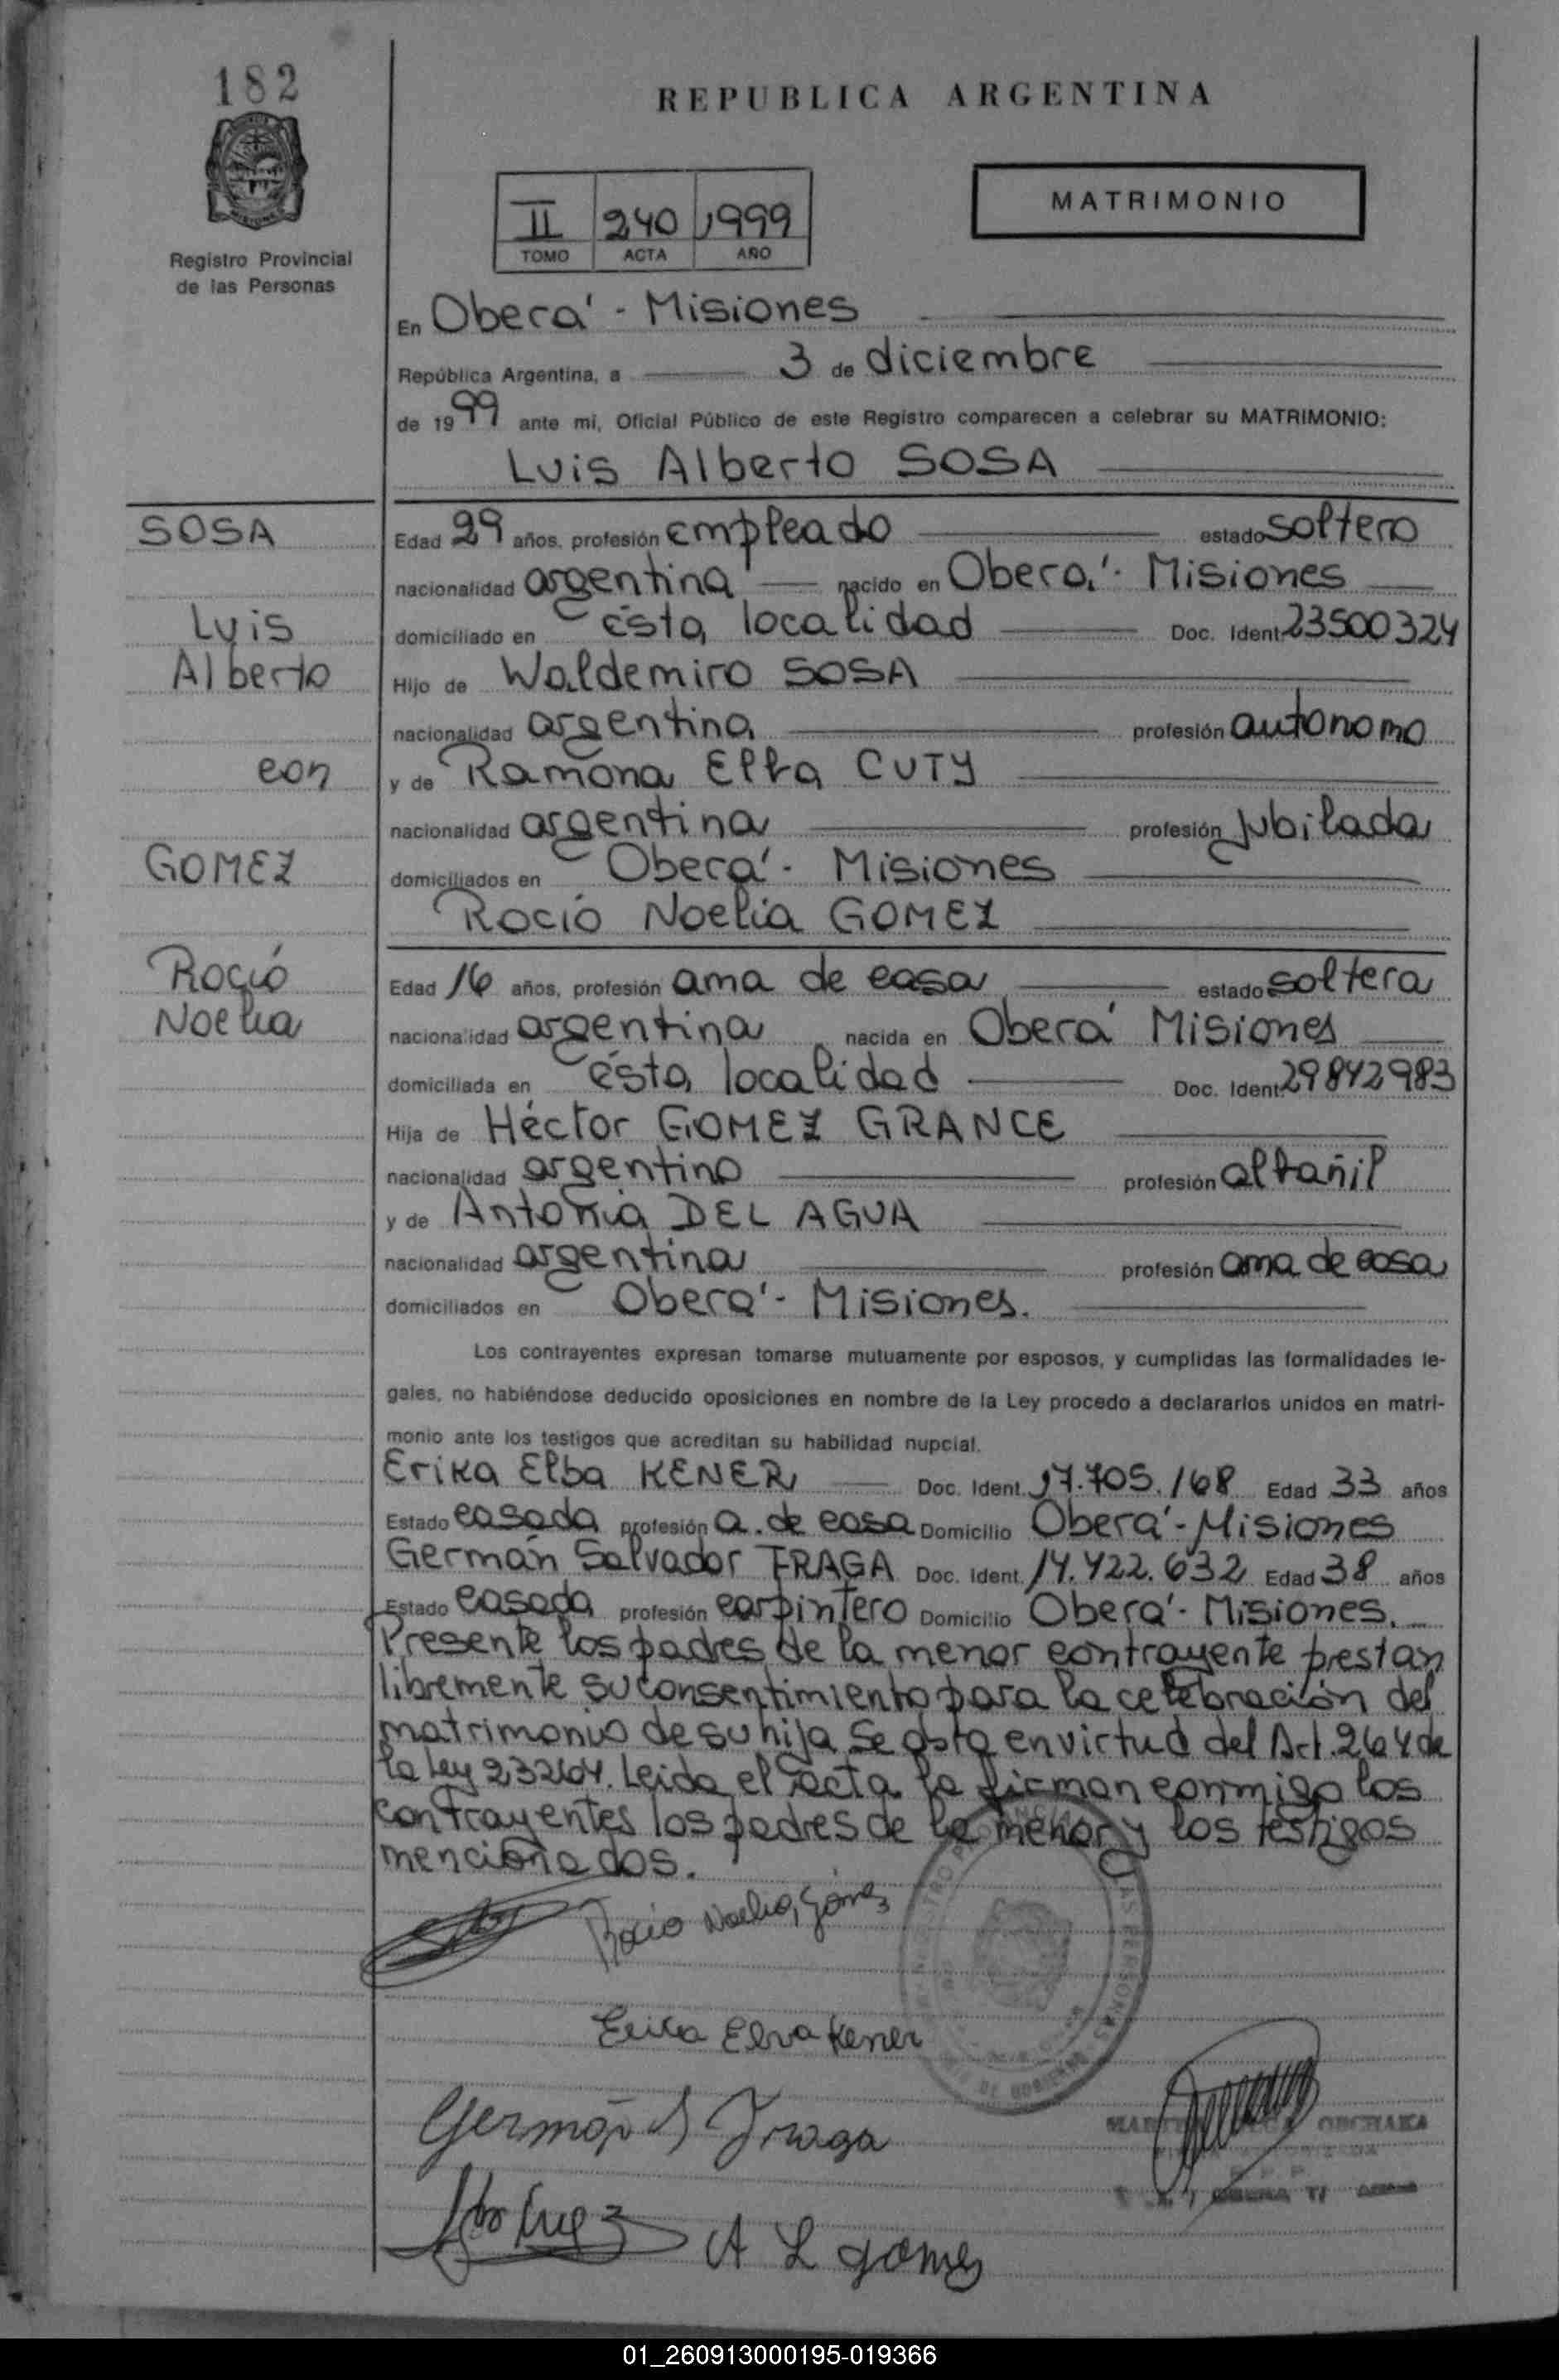 182
REPUBLICA ARGENTINA
MATRIMONIO
II 240 1999
TOMO ACTA AÑO
Registro Provincial
de las Personas
En Oberá - Misiones
República Argentina, a 3 de diciembre
de 1999 ante mi, Oficial Público de este Registro comparecen a celebrar su MATRIMONIO:
Luis Alberto SOSA
SOSA
Luis
Alberto
con
GOMEZ
Rocío
Noelia
Edad 29 años, profesión empleado estado soltero
nacionalidad argentina nacido en Oberá - Misiones
domiciliado en ésta localidad Doc. Ident. 23500324
Hijo de Waldemiro SOSA
nacionalidad argentina profesión autonomo
y de Ramona Elba CUTY
nacionalidad argentina profesión jubilada
domiciliados en Oberá - Misiones
Rocío Noelia GOMEZ
Edad 16 años, profesión ama de casa estado soltera
nacionalidad argentina nacida en Oberá Misiones
domiciliada en ésta localidad Doc. Ident. 29842983
Hija de Héctor GOMEZ GRANCE
nacionalidad argentino profesión albañil
y de Antonia DEL AGUA
nacionalidad argentina profesión ama de casa
domiciliados en Oberá - Misiones.
Los contrayentes expresan tomarse mutuamente por esposos, y cumplidas las formalidades le-
gales, no habiéndose deducido oposiciones en nombre de la Ley procedo a declararlos unidos en matri-
monio ante los testigos que acreditan su habilidad nupcial.
Erika Elba KENER Doc. Ident. 17.705.168 Edad 33 años
Estado casada profesión a. de casa Domicilio Oberá - Misiones
Germán Salvador FRAGA Doc. Ident. 14.422.632 Edad 38 años
Estado casada profesión carpintero Domicilio Oberá - Misiones.
Presente los padres de la menor contrayente prestan
libremente su consentimiento para la celebración del
matrimonio de su hija Se en virtud del Art. 264 de
la ley 23264. Leida el acta la firman conmigo los
contrayentes los padres de la menor y los testigos
mencionados.
Rocio Noelia Gómez
Erica Elva Kener
Germán S Fraga
A L gomez
01_260913000195-019366